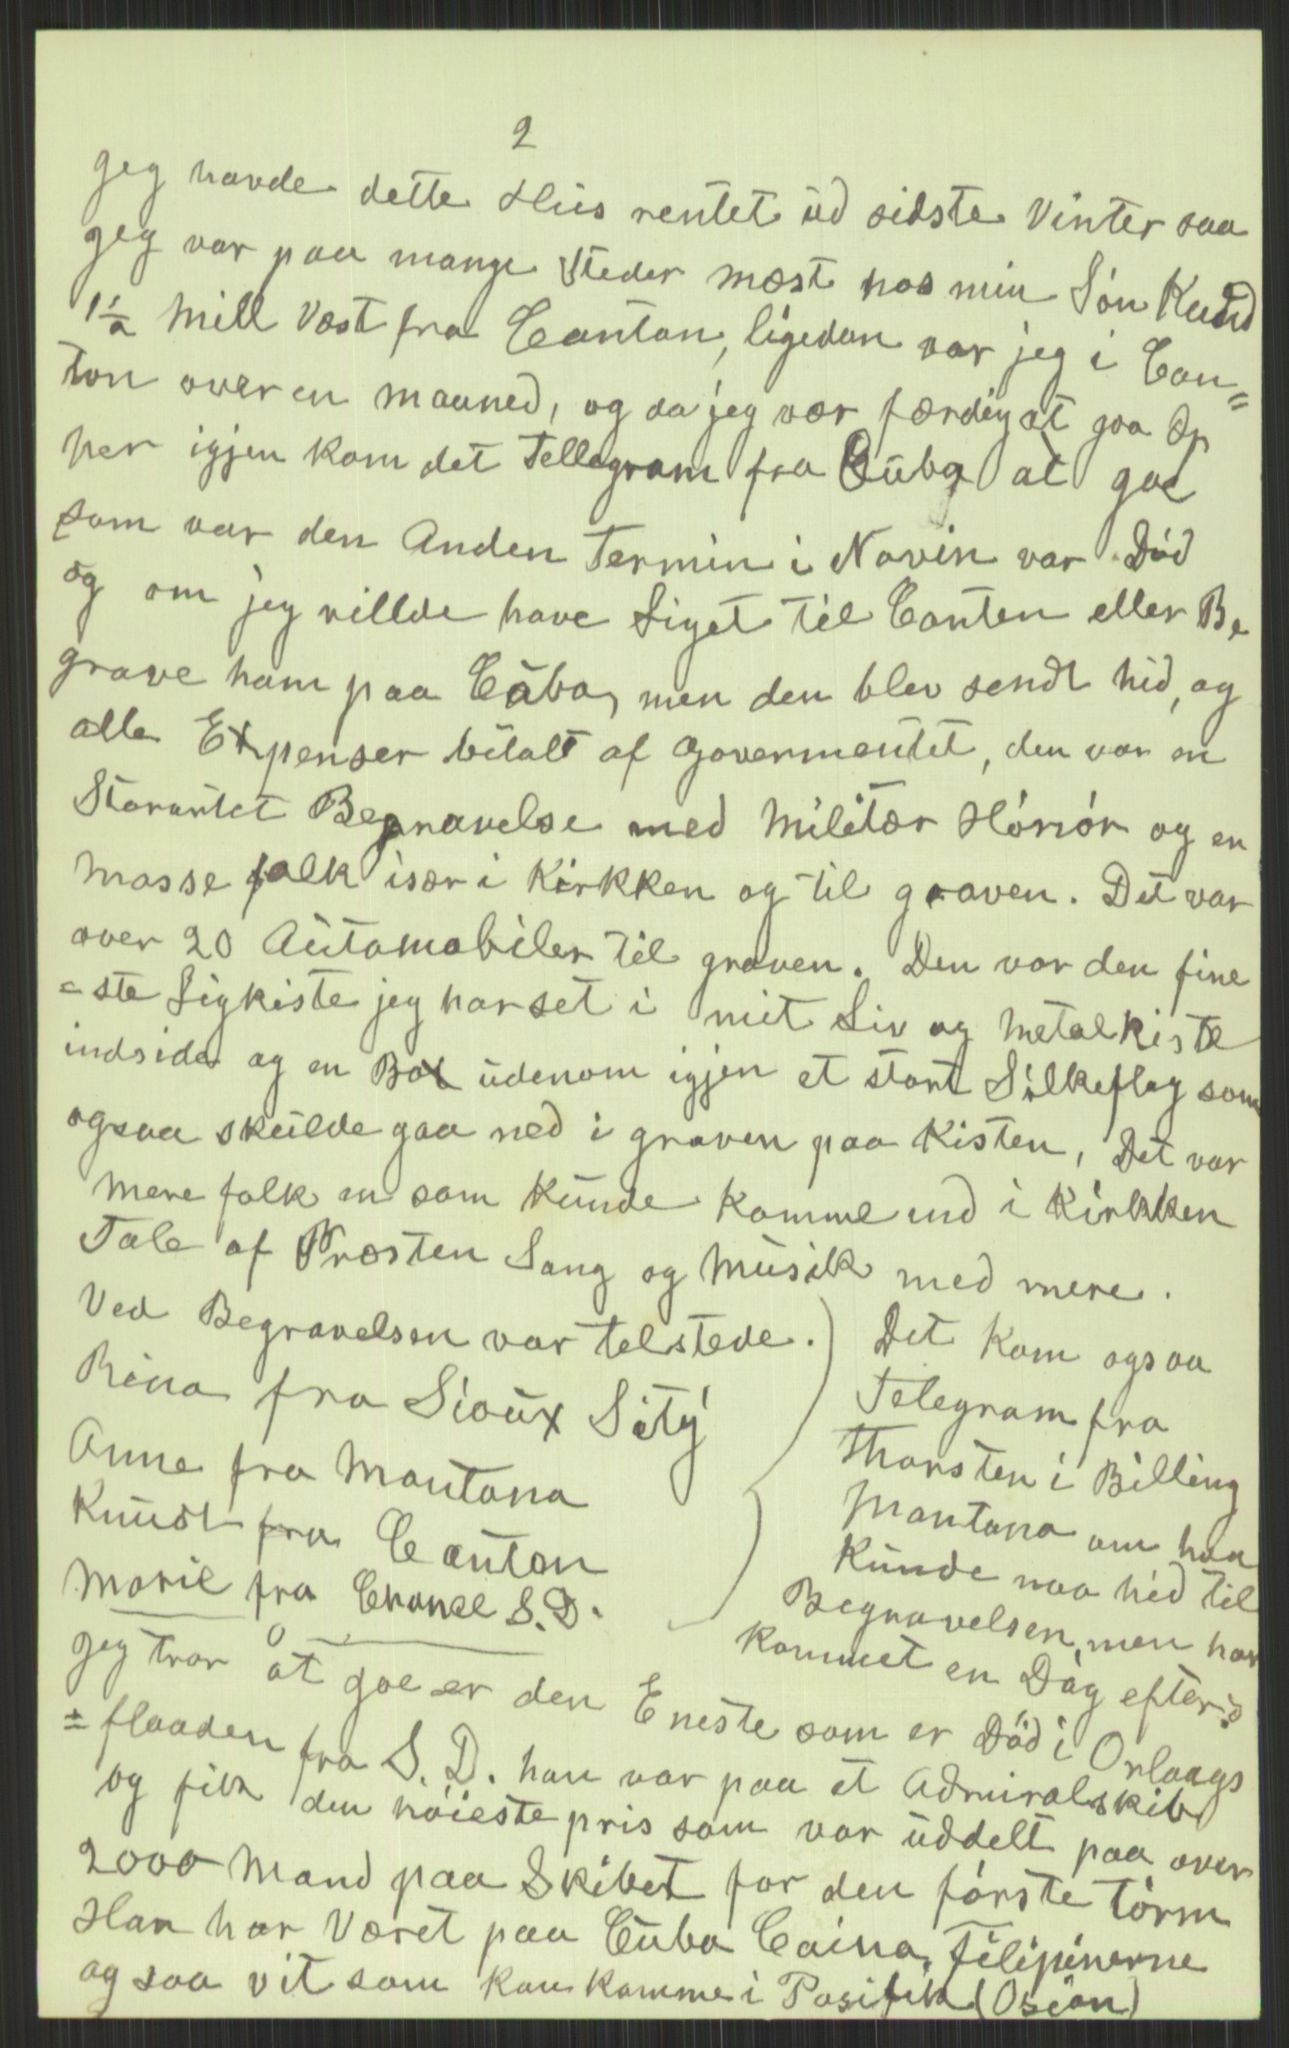 2
Jeg havde dette Hus rentet ud sidste Vinter saa
jeg var paa mange Steder mæst hos min Søn Knud
1½ Mill Væst fra Canton, ligedan var jeg i Can=
ton over en maaned, og da jeg var færdig at gaa Op
her igjen kom det Tellegram fra Cuba at Joe
som var den Anden Termin i Navin var Død
og om jeg villde have Liget til Canten eller Be
grave ham paa Cuba, men den blev sendt hid, og
alle Expenser bitalt af Govermentet, den var en
Storartet Begravelse med Militær Hónór og en
masse folk især i Kirkken og til graven. Det var
over 20 Automobiler til graven. Den var den fine
=ste Ligkiste jeg har set i mit Liv og Metalkiste
indside og en Box udenom igjen et stort Silkeflag som
ogsaa skulde gaa ned i graven paa Kisten, Det var
mere folk en som kunde komme ind i Kirkken
Tale af Præsten Sang og Musik med mere.
Ved Begravelsen var telstede.
Rina fra Sioux Sity
Anne fra Montana
Knudt fra Canton
Marie fra Chance S.D.
Det kom ogsaa
Telegram fra
Thorsten i Billing
Montana om han
kunde naa hid til
Begravelsen, men har
kommet en Dag efter?
Jeg tror at Joe er den Eneste som er Død i Orlaags
=flaaden fra S. D. han var paa et Admiralskib
og fik den høieste pris som var uddelt paa over
2000 Mand paa Skibet for den første Tørm
Han har Været paa Cuba Caina, Filipinerne
og saa vit som kan komme i Pasifik (Osian)